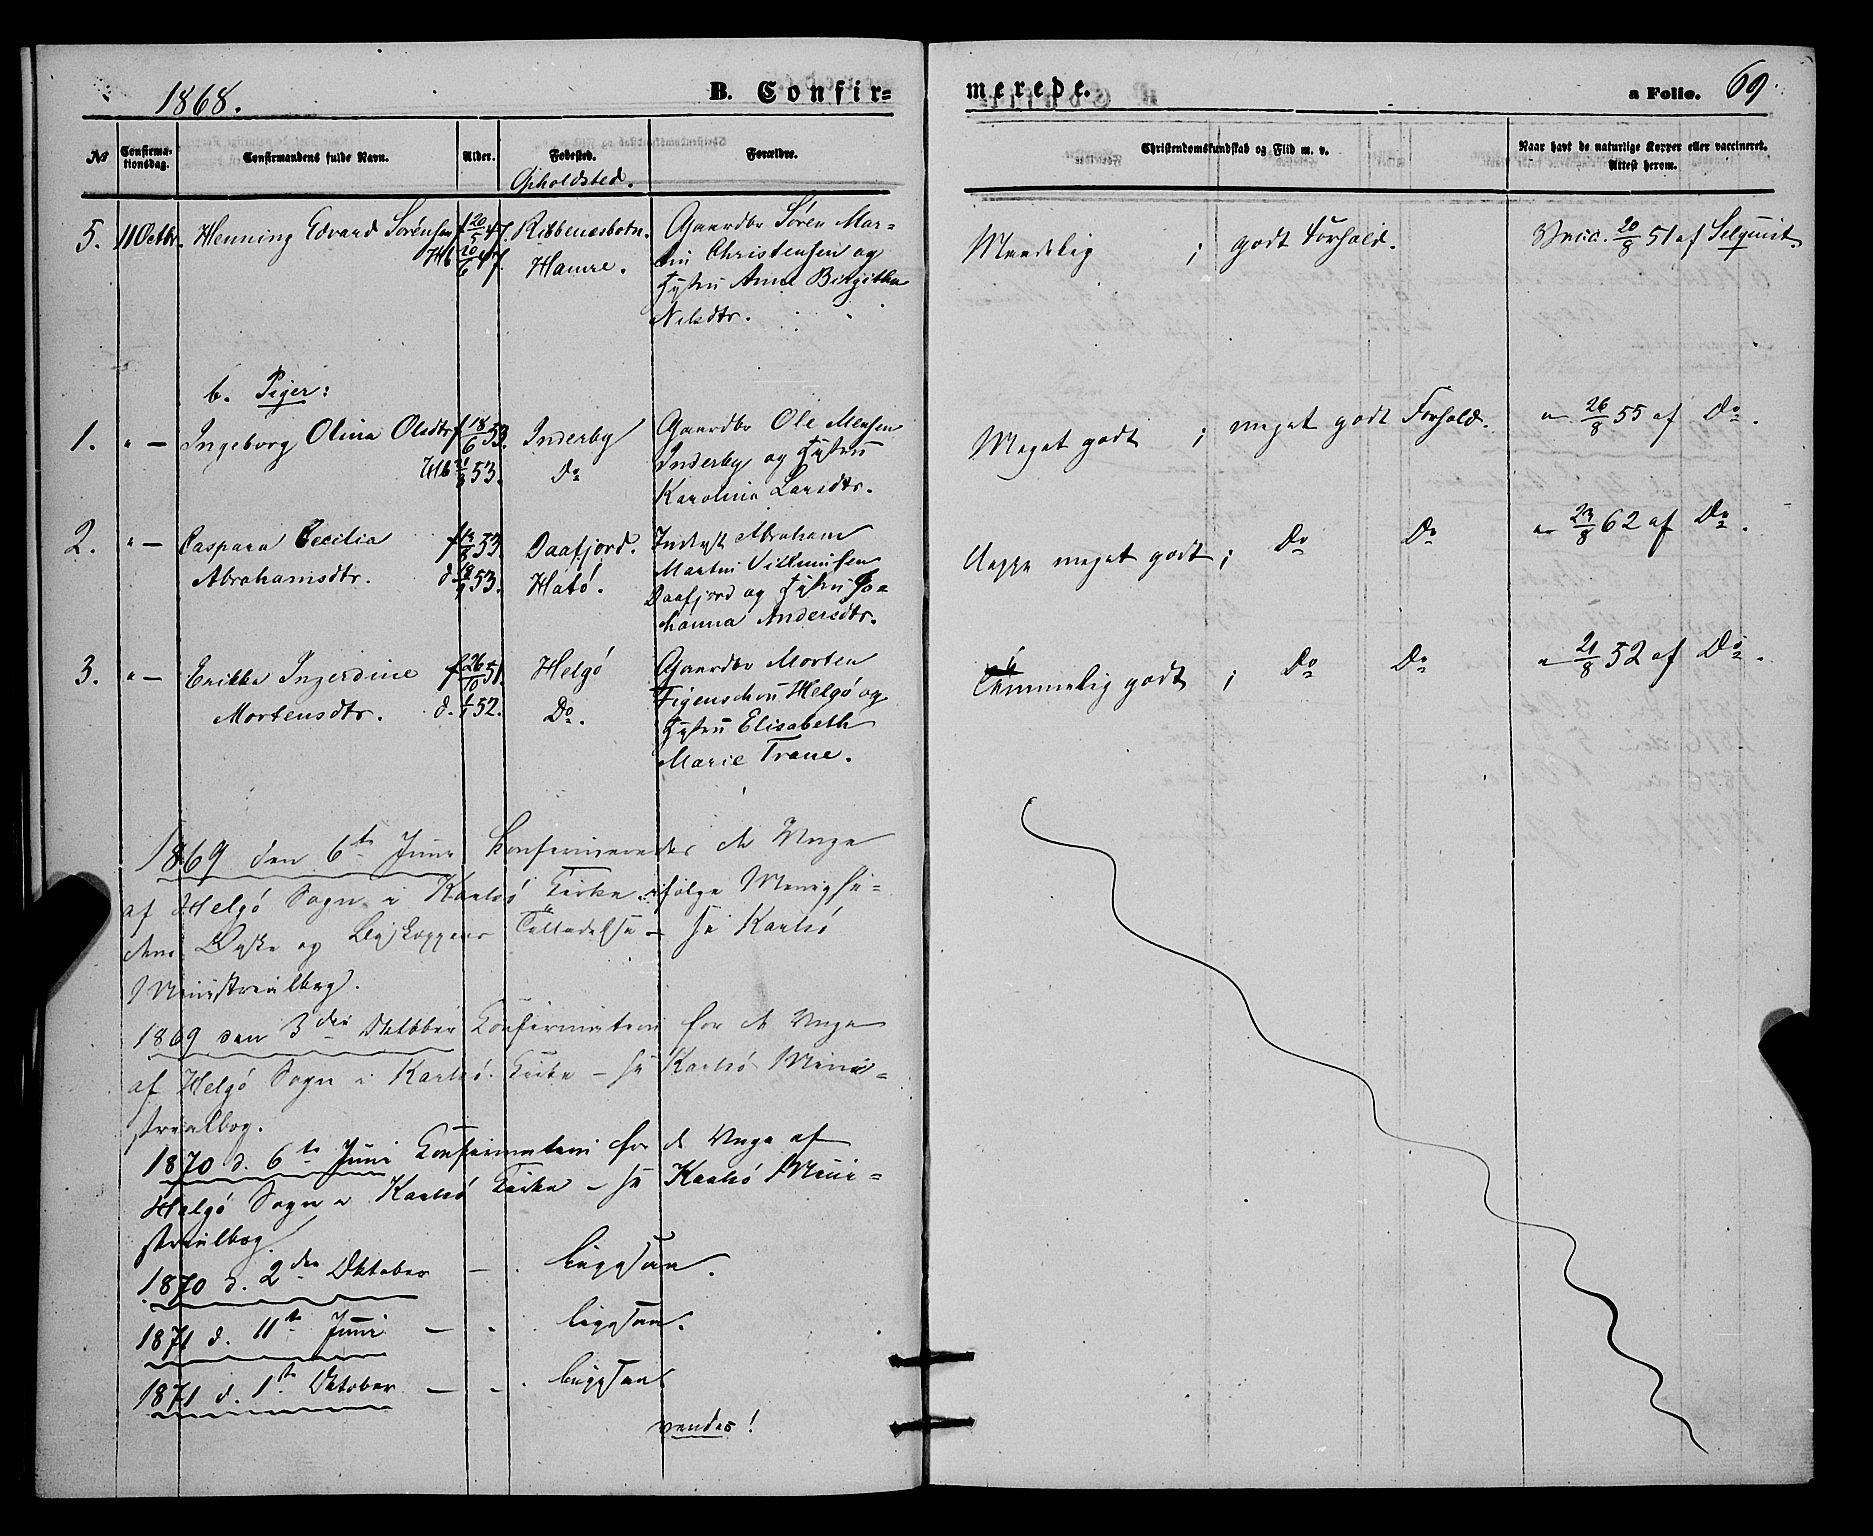 1868. B. Confir= merede. a Folio. 69.
№ Confirma-tionsdag. Confirmandens fulde Navn. Alder. Fødested. Forældre. Christendomskundskab og Flid m. v. Naar havt de naturlige Kopper eller vaccineret. Attest herom.
Opholdsted.
5. 11 Octbr. Henning Edvard Sørensen f 20/5 47. Ribbenæsbotn. Gaardbr Søren Mar=
Hb 20/6 47. Hamre. tin Christensen og
Hustru Anne Birgitha
Nilsdtr.
Maadelig ; godt Forhold. Vacc. 20/8 51 af Selqvist
b. Piger:
1. " — Ingeborg Olina Olsdtr f 18/6 53. Inderby Gaardbr Ole Mensen
Hb 53. Do Inderby og Hustru
Karolina Larsdtr.
Meget godt ; meget godt Forhold. " 26/8 55 af Do.
2. " — Caspara Cecilia f 53. Daafjord. Inderst Abraham
Abrahamsdtr. d. 53. Hatö. Martin
Daafjord og Hustru Jo=
hanna Andersdtr.
meget godt ; Do Do " 23/8 62 af Do.
3. " — Erikka Ingerdine f 26/10 51. Helgö Gaardbr Morten
Mortensdtr. d. 52. Do. Figenschou Helgö og
Hustru Elisabeth
Marie Trane.
Temmelig godt ; Do Do " 21/8 52 af Do.
1869 den 6te Juni Konfirmeredes de Unge
af Helgö Sogn i Karlsö Kirke ifølge Menighe=
dens Ønske og Biskoppens Tilladelse — se Karlsö
Ministerialbog.
1869 den 3die Oktober Konfirmation for de Unge
af Helgö Sogn i Karlsö Kirke — se Karlsö Mini=
sterialbog.
1870 d. 6te Juni Konfirmation for de Unge af
Helgö Sogn i Karlsö Kirke — se Karlsö Mini=
sterialbog.
1870 d. 2den Oktober — ligesaa.
1871 d. 11te Juni — - ligesaa.
1871 d. 1ste Oktober — - ligesaa
vendes!